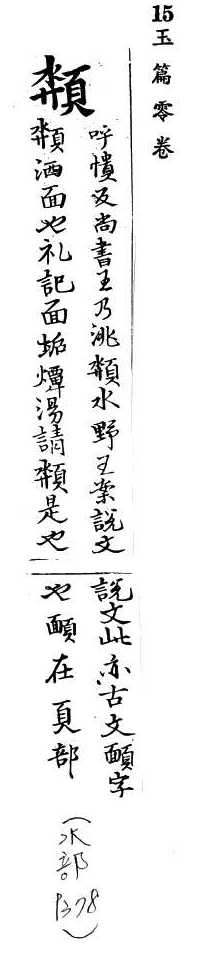 15玉篇零卷
頮
呼憒反尚書王乃洮頮水野王案說文
頮洒面也礼記面垢燂湯請頮是也
說文此亦古文字
也在頁部
(水部1378)